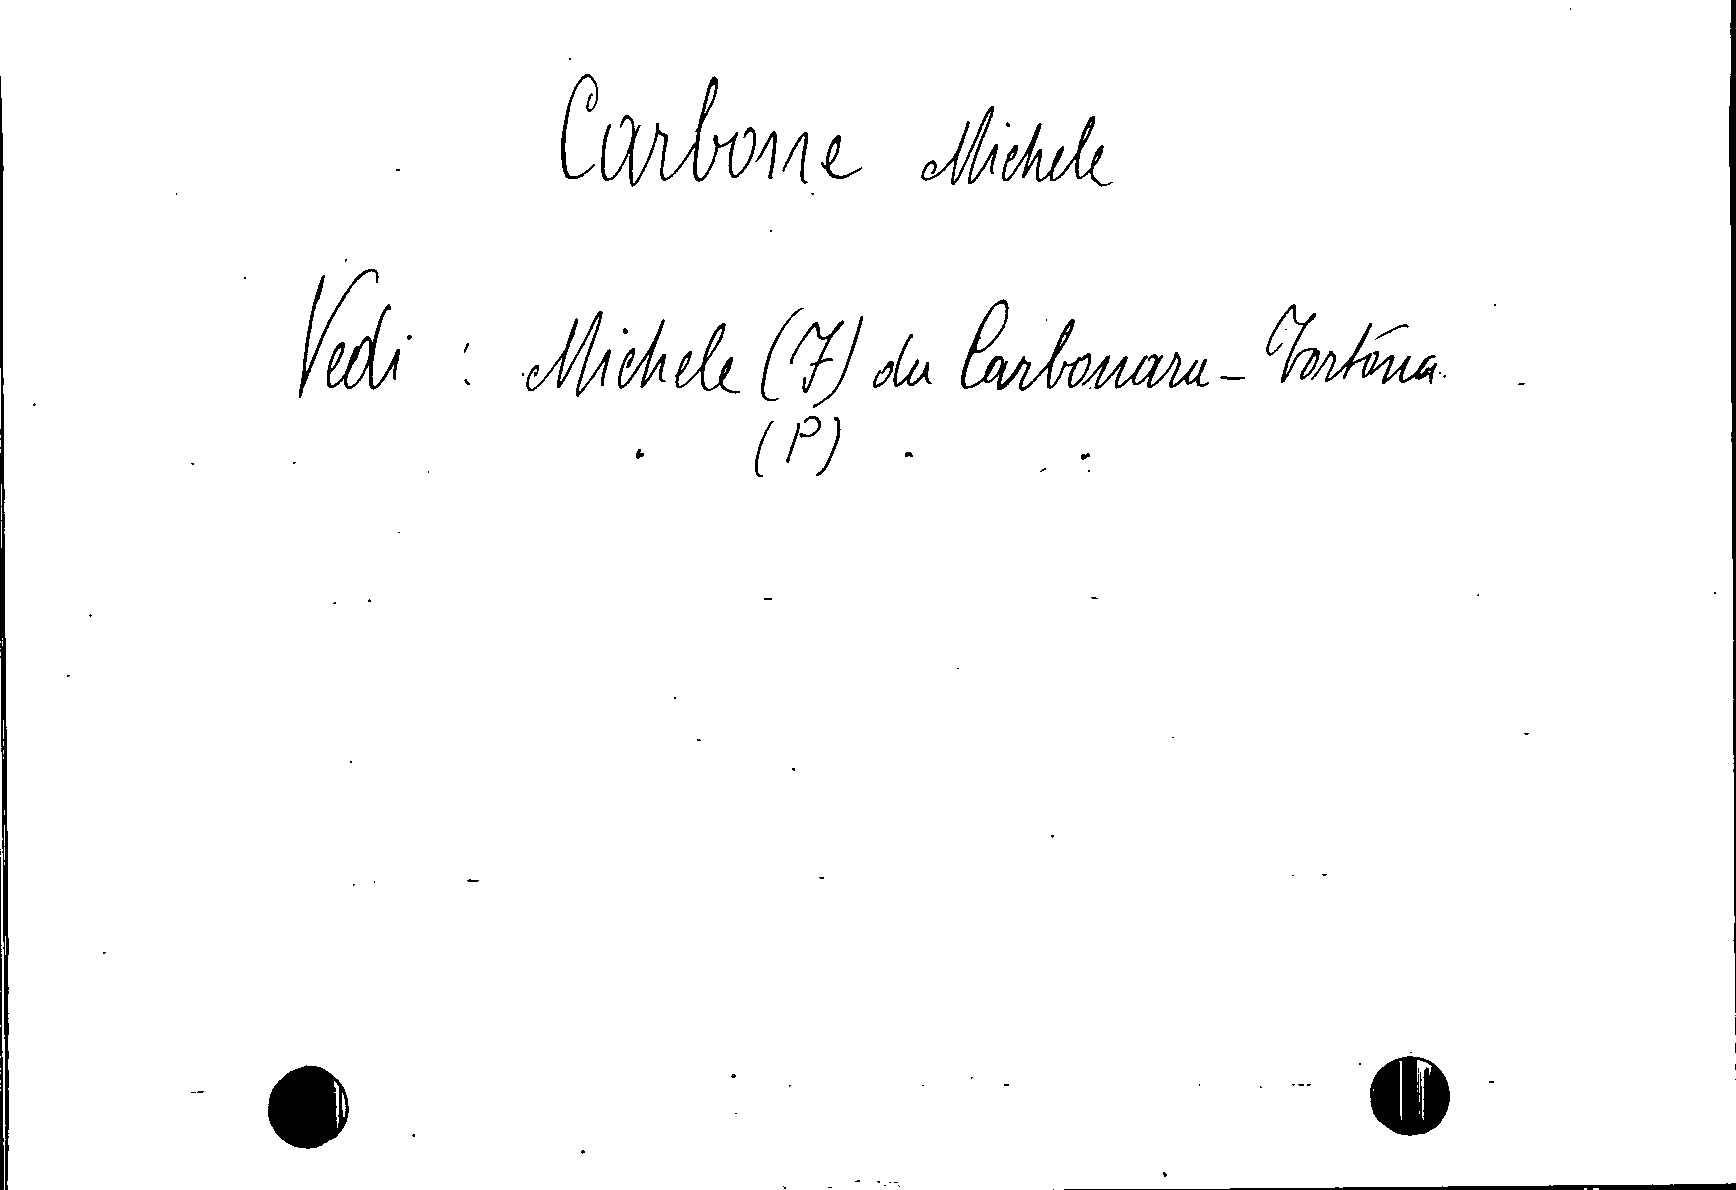 Carbone Michele
Vedi : Michele (F) da Carbonara - Tortona
(P)